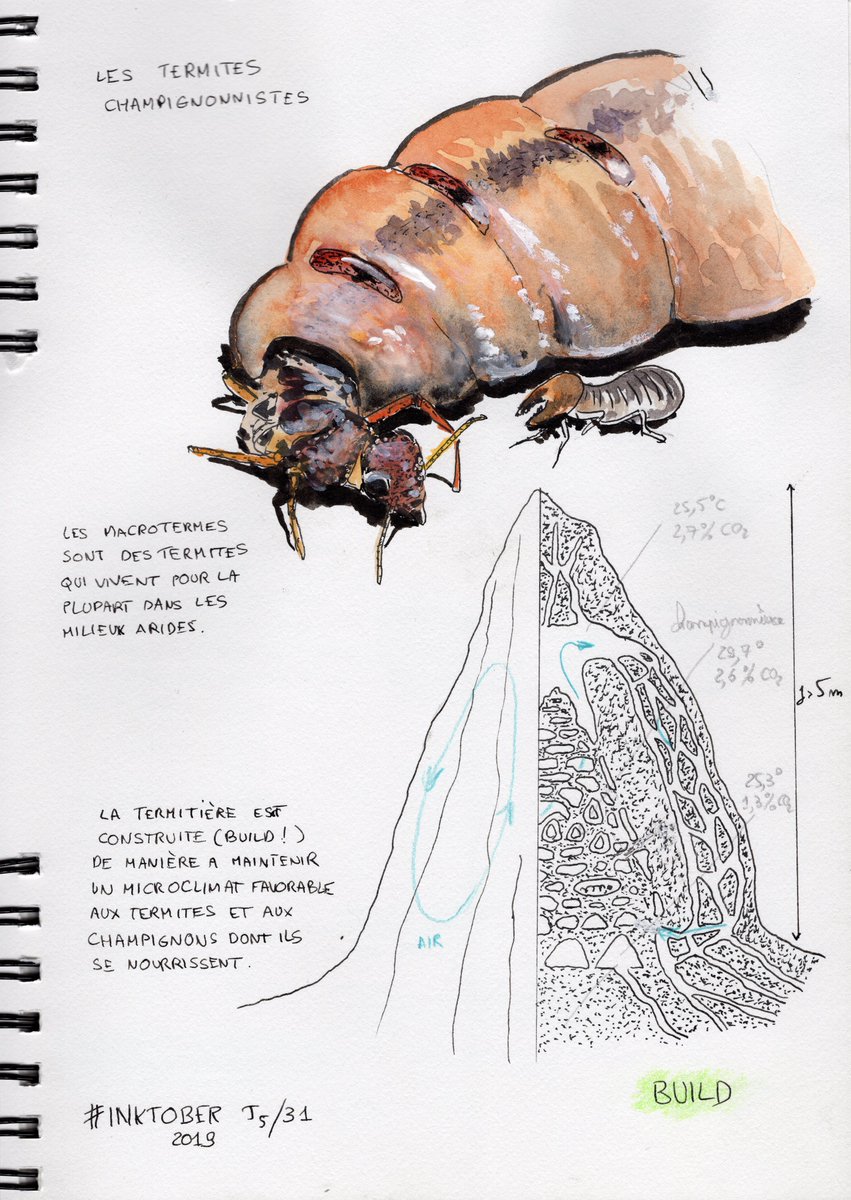 LES TERMITES
CHAMPIGNONNISTES
LES MACROTERMES
SONT DES TERMITES
QUI VIVENT POUR LA
PLUPART DANS LES
MILIEUX ARIDES.
25,5°C
2,7% CO2
Champignonnière
29,7°
2,6% CO2
J>5m
25,3°
1,3% CO2
LA TERMITIÈRE EST
CONSTRUITE (BUILD !)
DE MANIÈRE A MAINTENIR
UN MICROCLIMAT FAVORABLE
AUX TERMITES ET AUX
CHAMPIGNONS DONT ILS
SE NOURRISSENT.
AIR
BUILD
#INKTOBER J5/31
2019